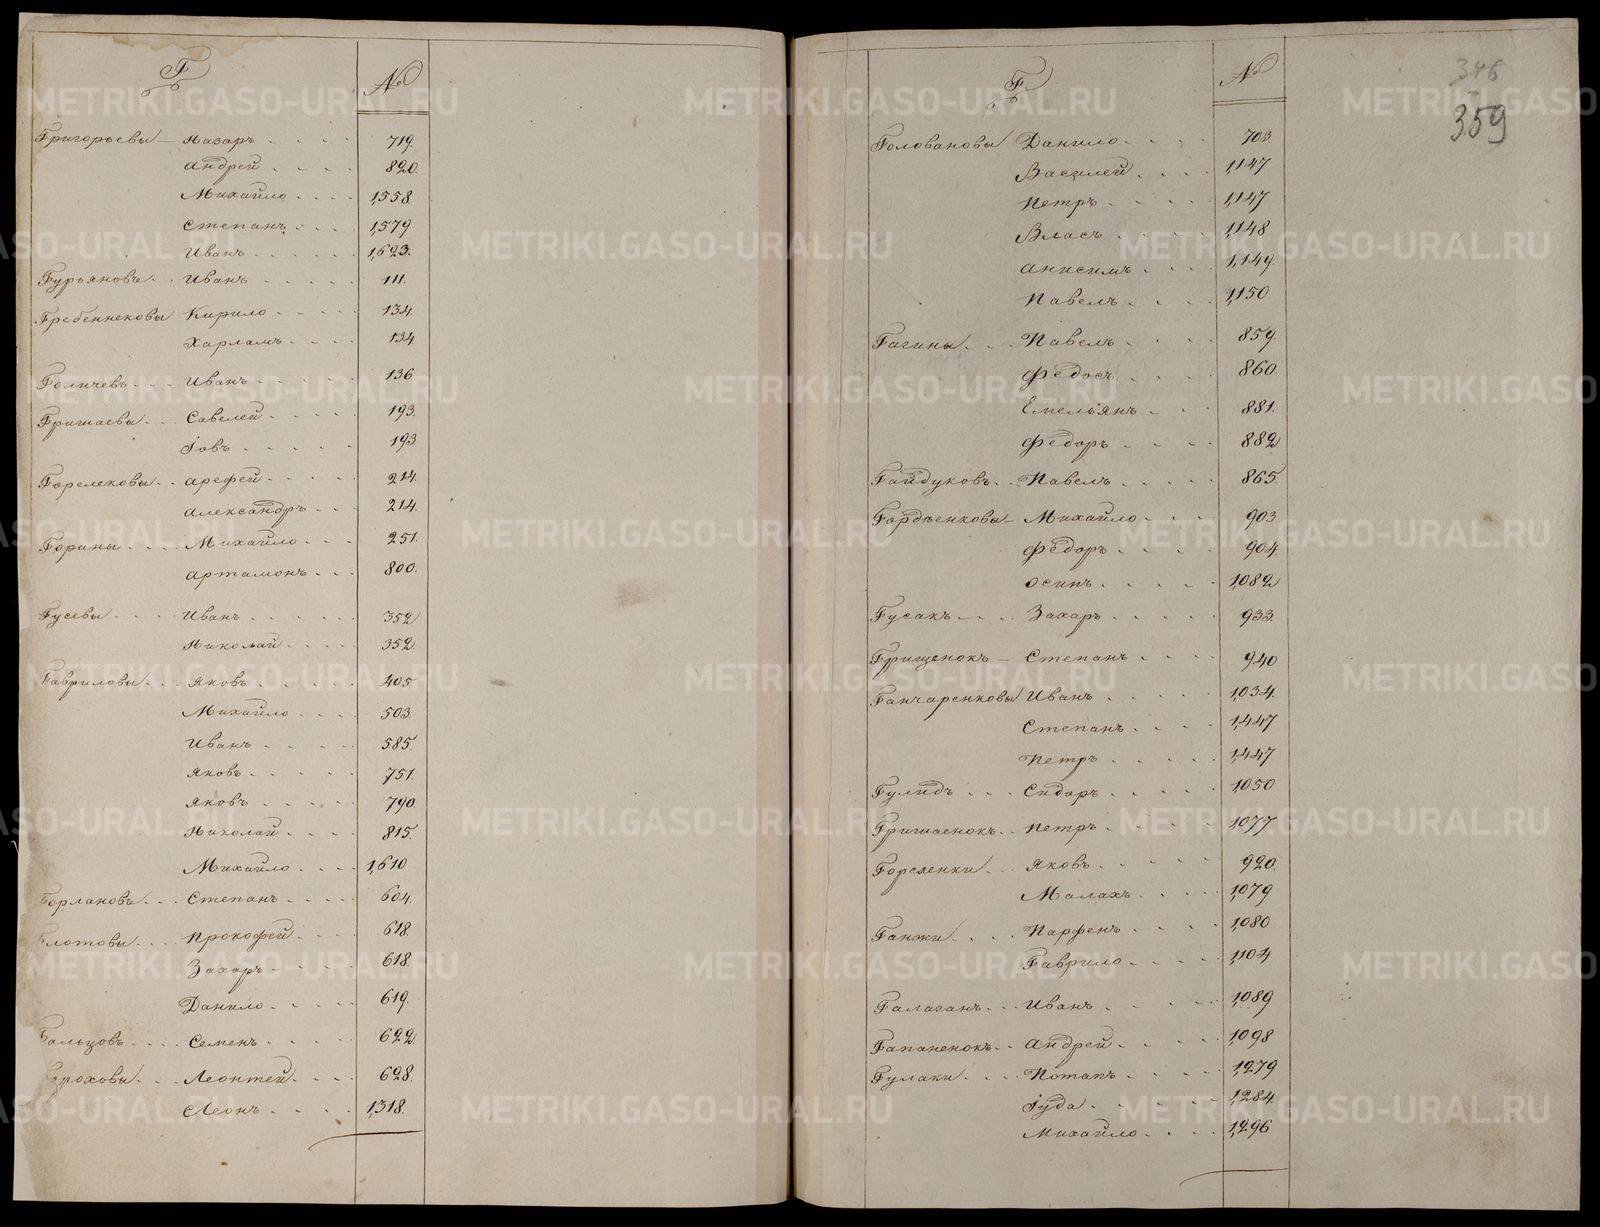 Г №
Григорьевы - Назаръ 719.
Андрей 820.
Михайло 1,558
Степанъ 1,579
Иванъ 1,623.
Гурьяновъ Иванъ 111.
Гребеннековы Кирило 134.
Харламъ 134
Голичевъ Иванъ 136
Гришаевы Савелей 193.
Іовъ 193
Горелековы Арефей 214.
Александръ 214.
Горины Михайло 251.
Артамонъ 800.
Гусевы Иванъ 352
Николай 352
Гавриловы Яковъ 405
Михайло 503.
Иванъ 585.
Яковъ 751.
Яковъ 790.
Николай 815.
Михайло 1,610
Горлановъ Степанъ 604.
Глотовы Прокофей 618.
Захаръ 618.
Данило 619.
Гальцовъ Семенъ 622
Гороховы Леонтей 628.
Леонъ 1,318.
Г № 346
359
Головановы Данило 703.
Василей 1,147
Петръ 1,147
Власъ 1,148
Анисимъ 1,149
Павелъ 1,150
Гагины Павелъ 859.
Федосъ 860.
Емельянъ 881.
Федоръ 882
Гайдуковъ Павелъ 865
Гордѣенковы - Михайло 903
Федоръ 904.
Осипъ 1,082
Гусакъ Захаръ 933.
Грищенокъ - Степанъ 940
Ганчаренковы Иванъ 1,034.
Степанъ 1,447
Петръ 1,447
Гулидъ Сидаръ 1,050
Гришаенокъ Петръ 1,077
Гореленки Яковъ 920.
Малахъ 1,079
Ганжи Парфенъ 1,080
Гаврило 1,104
Галаганъ Иванъ 1,089
Гапаненокъ Андрей 1,098
Гулаки Потапъ 1,279
Іуда 1,284.
Михайло 1,296
METRIKI.GASO-URAL.RU